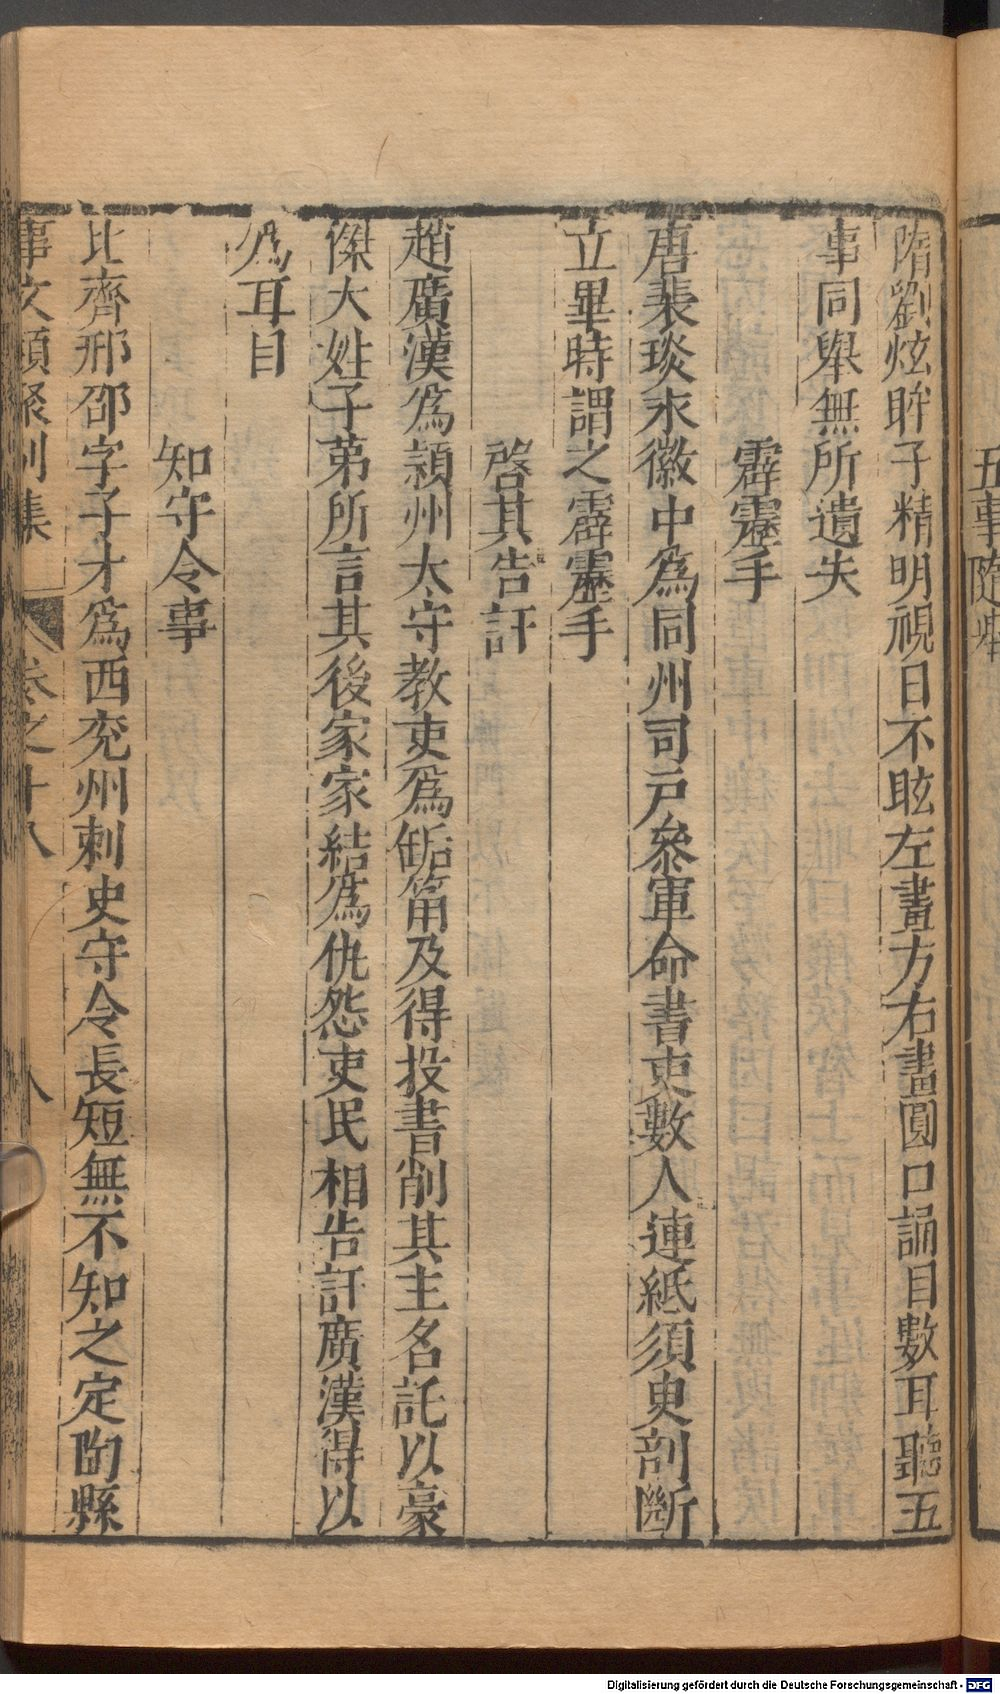 五事隨舉
隋劉炫眸子精明視日不眩左畫方右畫圓口誦目數耳聽五
事同舉無所遺失
霹靂手
唐裴琰永徽中為同州司戶參軍命書吏數人連紙須臾剖斷
立畢時謂之霹靂手
啓其告訐
趙廣漢爲穎州太守教吏爲缿筩及得投書削其主名託以豪
傑大姓子弟所言其後家家結爲仇怨吏民相告訐廣漢得以
爲耳目
知守令事
北齊邢邵字子才爲西兖州刺史守令長短無不知之定陶縣
事文類聚別集 卷之十八 八
Digitalisierung gefördert durch die Deutsche Forschungsgemeinschaft - DFG